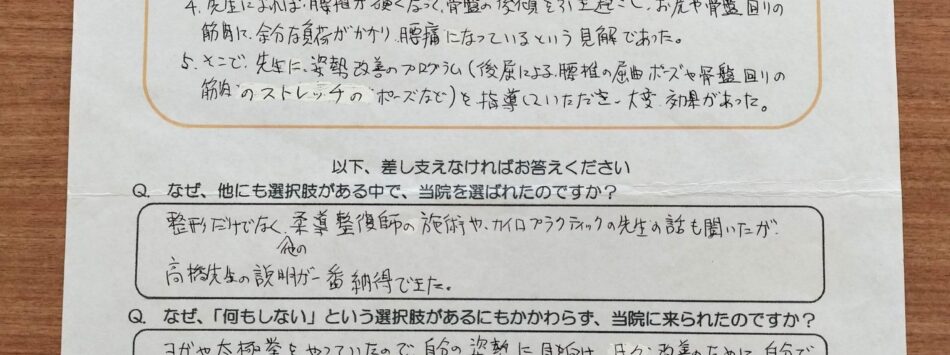 4. 先生によれば、腰椎が硬くなって、骨盤の後傾を引き起こし、お尻や骨盤回りの
筋肉に、余分な負荷がかかり、腰痛になっているという見解であった。
5. そこで、先生に、姿勢改善のプログラム(後屈による、腰椎の屈曲ポーズや骨盤回りの
筋肉のストレッチのポーズなど)を指導していただき、大変、効果があった。
以下、差し支えなければお答えください
Q. なぜ、他にも選択肢がある中で、当院を選ばれたのですか?
整形だけでなく、柔導整復師の施術や、カイロプラクティックの先生の話も聞いたが、
他の
高橋先生の説明が一番納得できた。
Q. なぜ、「何もしない」という選択肢があるにもかかわらず、当院に来られたのですか?
ヨガや太極拳をやっていたので、自分の姿勢に
改善のために、自分で